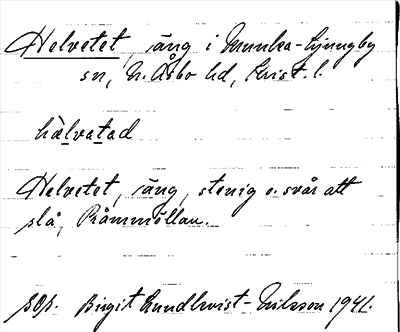 Helvetet, äng i Munka-Ljungby
sn, N. Åsbo hd, Krist. l.
hälvatad
Helvetet, äng, stenig o. svår att
slå, Råmmöllan.
pop. Birgit Lundkvist-Nilsson 1941.